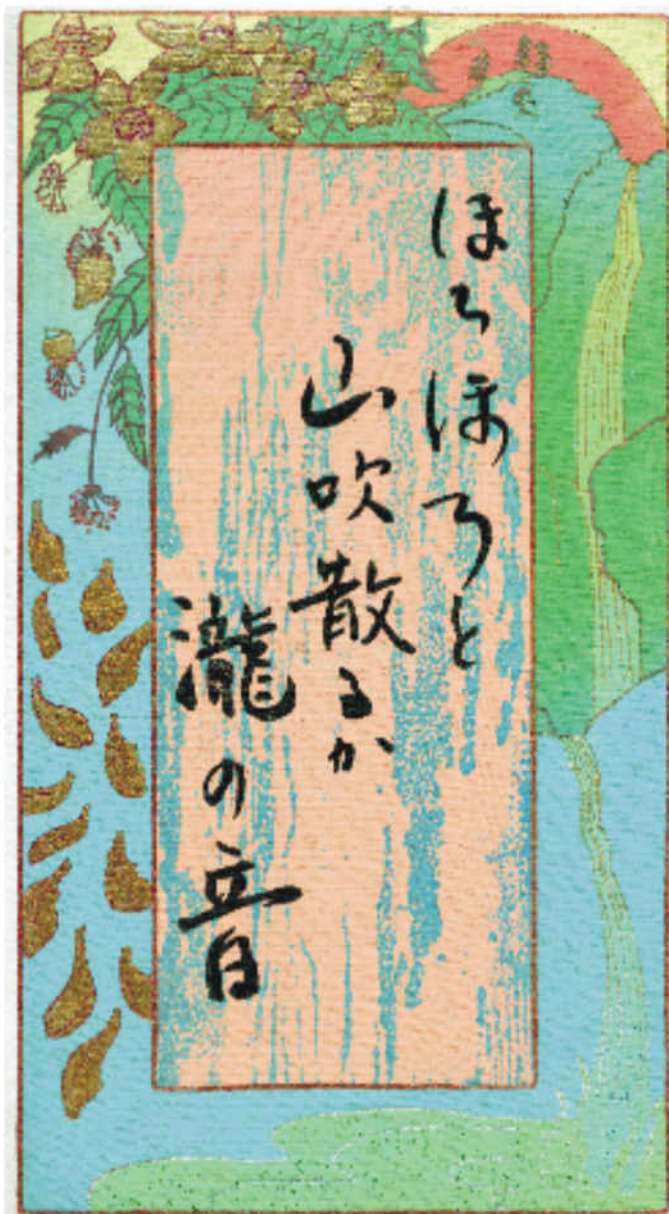 ほろほろと
山吹散るか
瀧の音